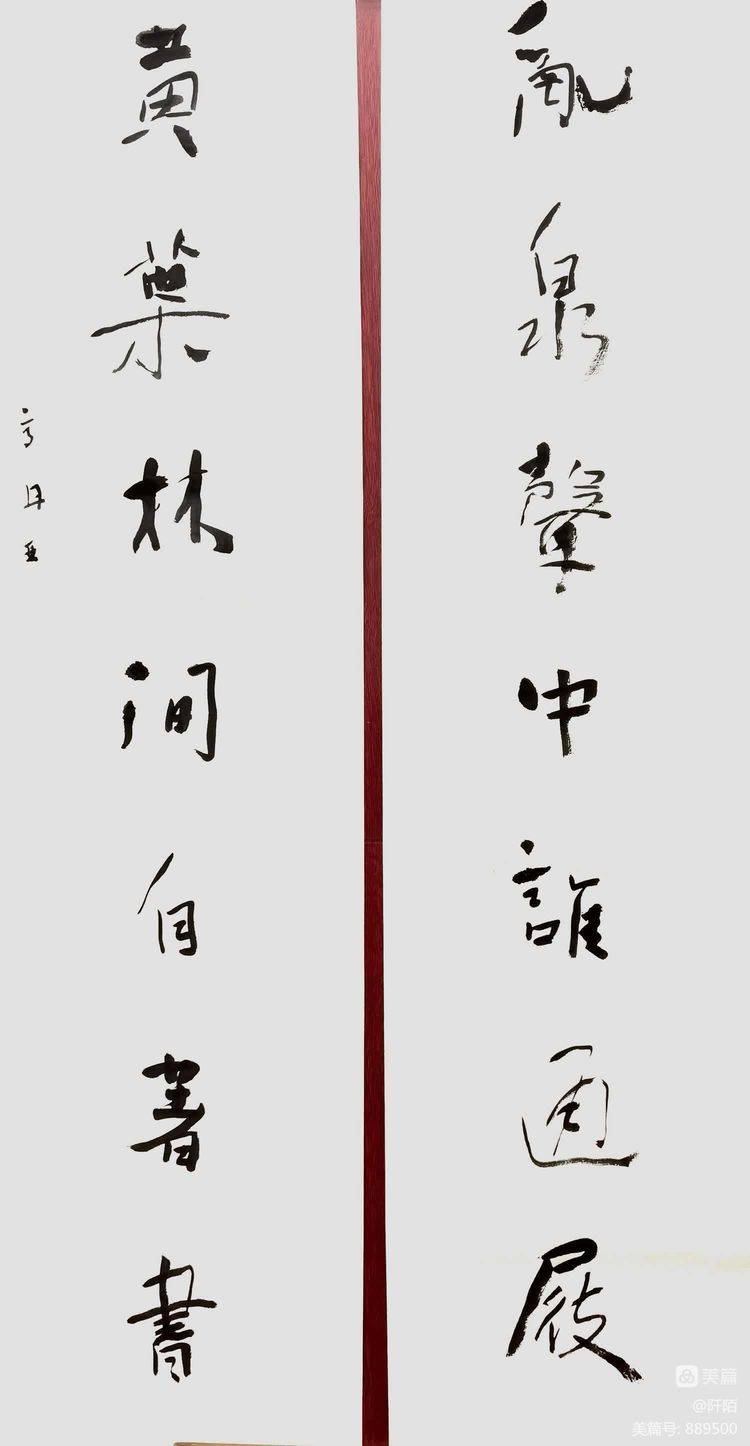 亂泉聲中誰通屐
黃葉林間自著書
美篇
@阡陌
美篇号: 889500